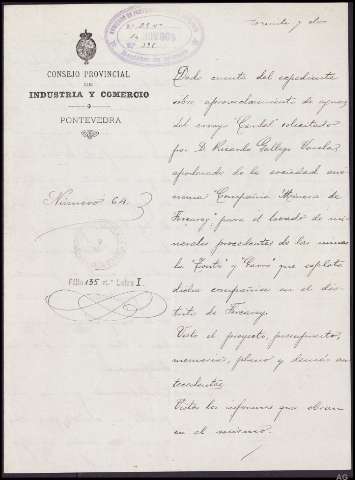 CONSEJO PROVINCIAL
DE
INDUSTRIA Y COMERCIO
PONTEVEDRA
Número 64
Fllio 135 n.º Letra I.
Dada cuenta del expediente
sobre aprovechamiento de aguas
del arroyo solicitado
por D. Ricardo Gallego
apoderado de la sociedad anó-
nima Compañia Minera de
Forcarey para el lavado de mi-
nerales procedentes de las minas
la y que explota
dicha compañia en el dis-
trito de Forcarey.
Visto el proyecto, presupuesto,
memoria, plano y demás an-
tecedentes.
Vistos los informes que obran
en el mismo.
AG